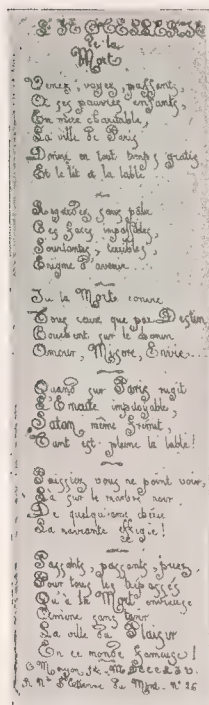 L'HOTELLERIE
De la
Mort.
Venez, voyez, passants,
A ses pauvres enfants,
En mère charitable,
La ville de Paris
Donne en tout temps gratis
Et le lit et la table
Regardez sans pâlir
Ces faces impassibles,
Souriantes, terribles,
Enigme d'avenir.
Ici la Mort convie
Tous ceux que par Destin
Couchent sur le chemin
Amour, Misère, Envie.
Quand sur Paris rugit
L'Emeute impitoyable,
Satan même frémit,
Tant est pleine la table!
Puissiez vous ne point voir,
Là sur le marbre noir
De quelqu'ame chérie
La navrante effigie!
Passants, passants, priez
Pour tous les trépassés
Qu'à la Mort envieuse
Amène sans tarir
La ville du Plaisir
En ce monde fameuse!
C. Meryon ft.
R. Nve St Etienne du Mont. N° 26